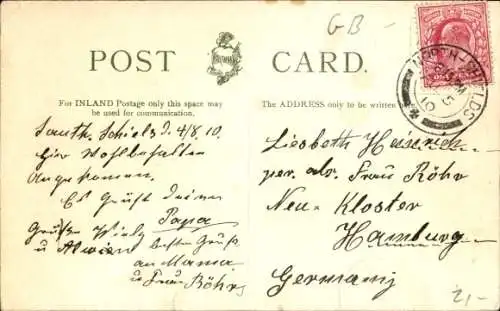 GB -
POST CARD.
For INLAND Postage only this space may
be used for communication.
The ADDRESS only to be written
NORTH SHIELDS
South Schields d. 4/8.10.
Hier Wohlbehalten
Angekommen.
Es Grüft Deine
Papa
Grüße
u
besten Gruß
an Mama
u Frau Röhrs
Liesbeth Heinrich
per. adr. Frau Röhr
Neu-Kloster
Hamburg
Germany
2,-